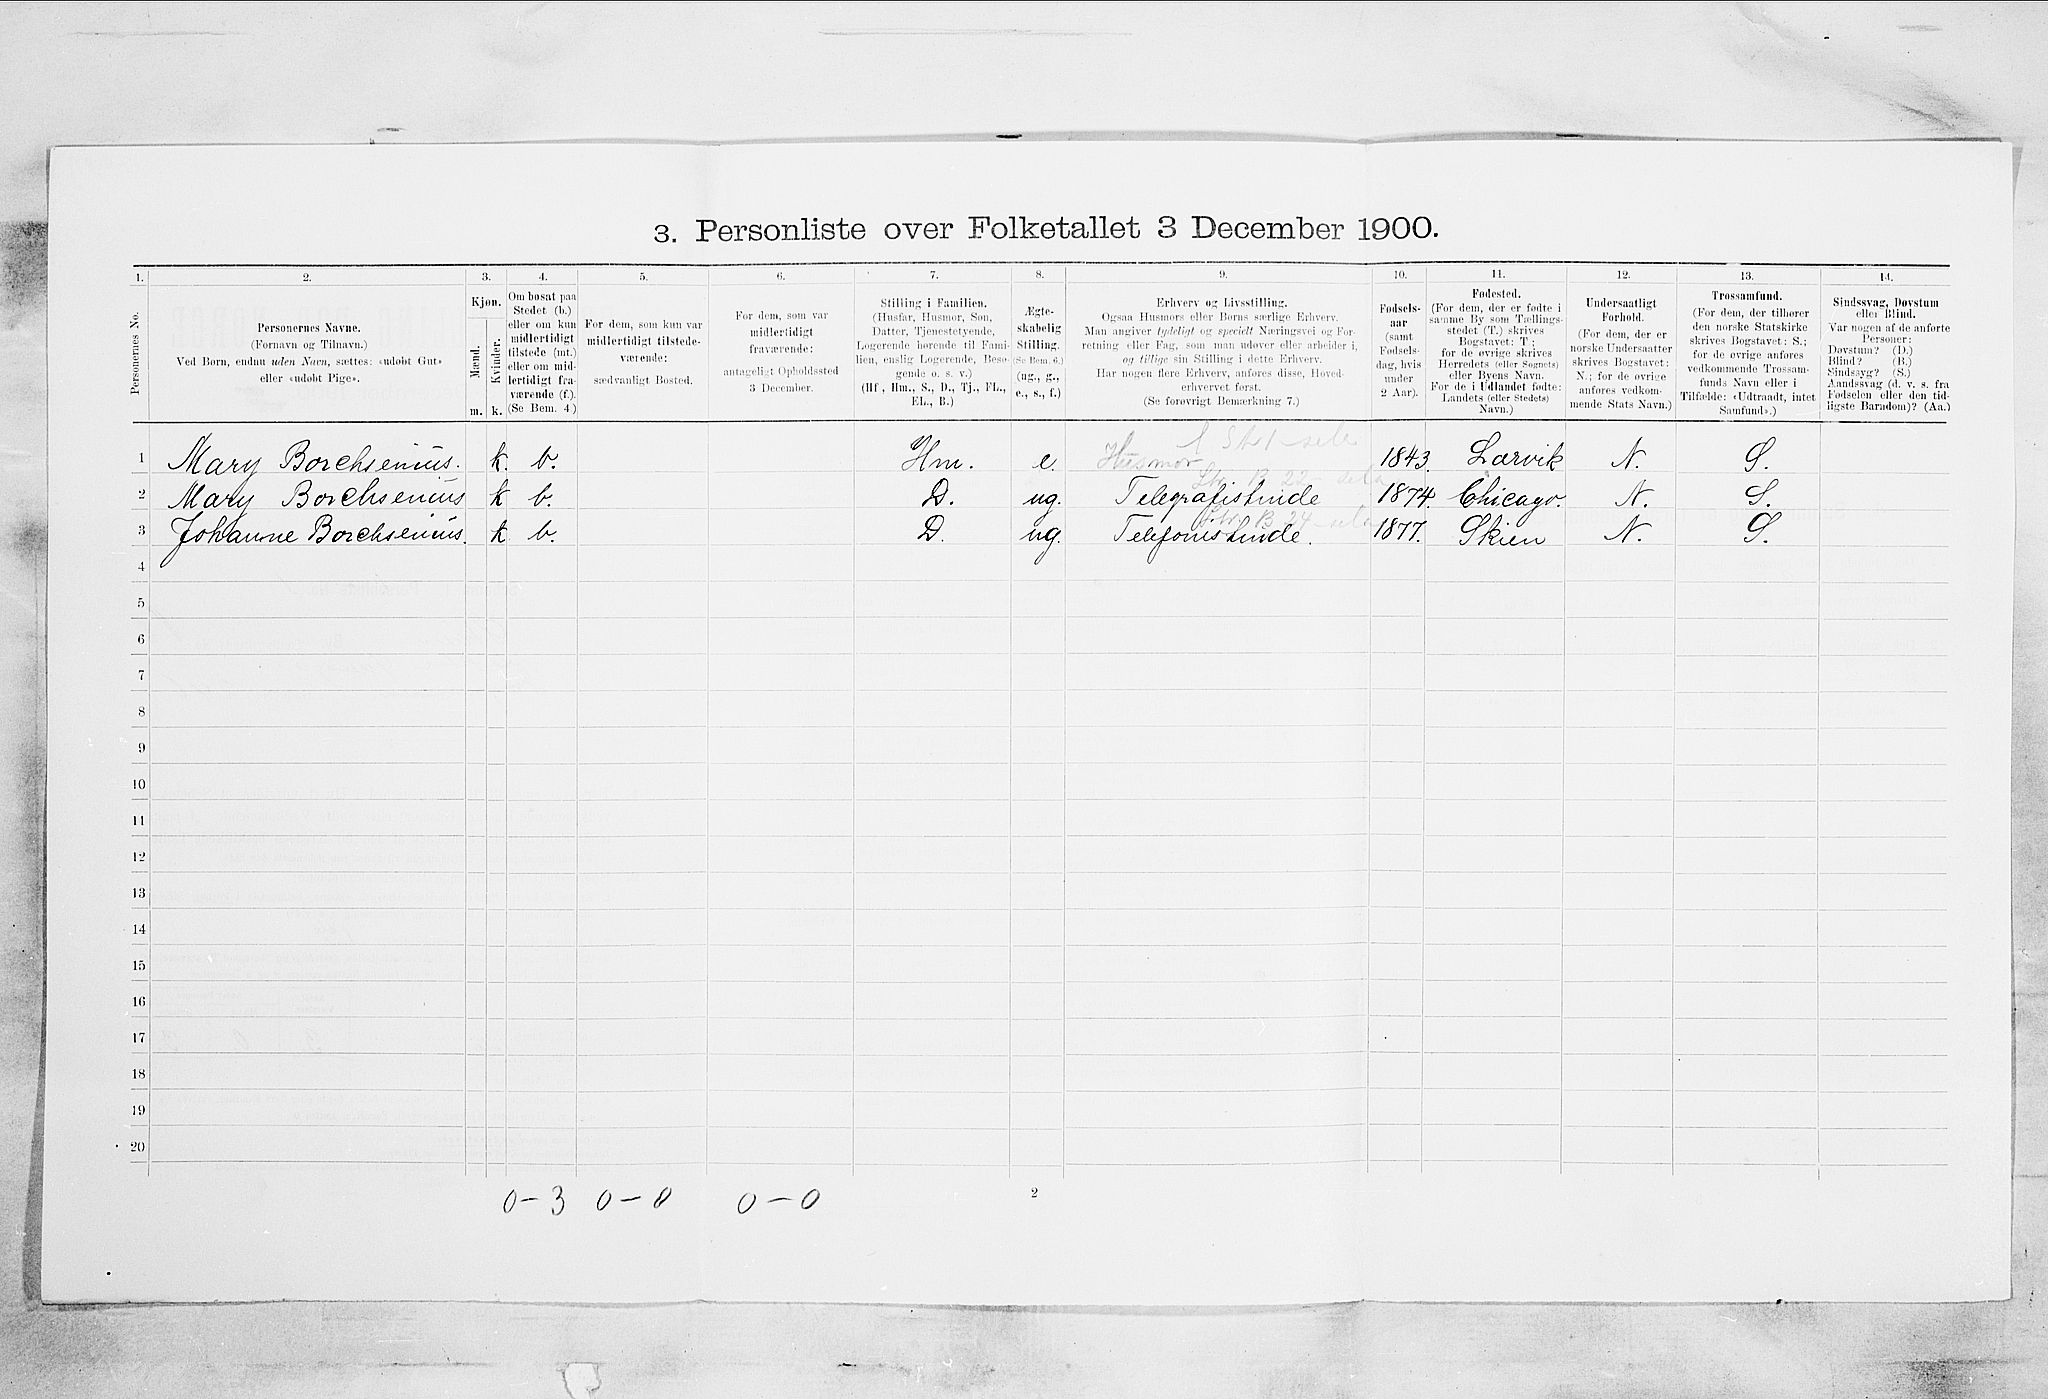 3. Personliste over Folketallet 3 December 1900.
1. 2. 3. 4. 5. 6. 7. 8. 9. 10. 11. 12. 13. 14.
Personernes No.
Personernes Navne.
(Fornavn og Tilnavn.)
Ved Børn, endnu uden Navn, sættes: «udøbt Gut»
eller «udøbt Pige».
Kjøn.
Mænd.
Kvinder.
m. k.
Om bosat paa
Stedet (b.)
eller om kun
midlertidigt
tilstede (mt.)
eller om mid-
lertidigt fra-
værende (f.).
(Se Bem. 4.)
For dem, som kun var
midlertidigt tilstede-
værende:
sædvanligt Bosted.
For dem, som var
midlertidigt
fraværende:
antageligt Opholdssted
3 December.
Stilling i Familien.
(Husfar, Husmor, Søn,
Datter, Tjenestetyende,
Logerende hørende til Fami-
lien, enslig Logerende, Besø-
gende o. s. v.)
(Hf., Hm., S., D., Tj., FL.,
EL., B.)
Ægte-
skabelig
Stilling.
(Se Bem. 6.)
(ug., g.,
e., s., f.)
Erhverv og Livsstilling.
Ogsaa Husmors eller Børns særlige Erhverv.
Man angiver tydeligt og specielt Næringsvei og For-
retning eller Fag, som man udøver eller arbeider i,
og tillige sin Stilling i dette Erhverv.
Har nogen flere Erhverv, anføres disse, Hoved-
erhvervet først.
(Se forøvrigt Bemærkning 7.)
Fødsels-
aar
(samt
Fødsels-
dag, hvis
under
2 Aar).
Fødested.
(For dem, der er fødte i
samme By som Tællings-
stedet (T.) skrives
Bogstavet: T.;
for de øvrige skrives
Herredets (eller Sognets)
eller Byens Navn.
For de i Udlandet fødte:
Landets (eller Stedets)
Navn.)
Undersaatligt
Forhold.
(For dem, der er
norske Undersaatter
skrives Bogstavet:
N.; for de øvrige
anføres vedkom-
mende Stats Navn.)
Trossamfund.
(For dem, der tilhører
den norske Statskirke
skrives Bogstavet: S.;
for de øvrige anføres
vedkommende Trossam-
funds Navn eller i
Tilfælde: «Udtraadt, intet
Samfund».)
Sindssvag, Døvstum
eller Blind.
Var nogen af de anførte
Personer:
Døvstum? (D.)
Blind? (B.)
Sindssyg? (S.)
Aandssvag (d. v. s. fra
Fødselen eller den tid-
ligste Barndom)? (Aa.)
1 Mary Borchsenius. k. b. Hm. e. Husmor 1843. Larvik N. S.
2 Mary Borchsenius k b. D. ug. Telegrafistinde 1874. Chicago. N. S.
3 Johanne Borchsenius. k b. D. ug. Telefonistinde. 1877. Skien N. S.
4
5
6
7
8
9
10
11
12
13
14
15
16
17
18
19
20
0-3 0-0 0-0
2